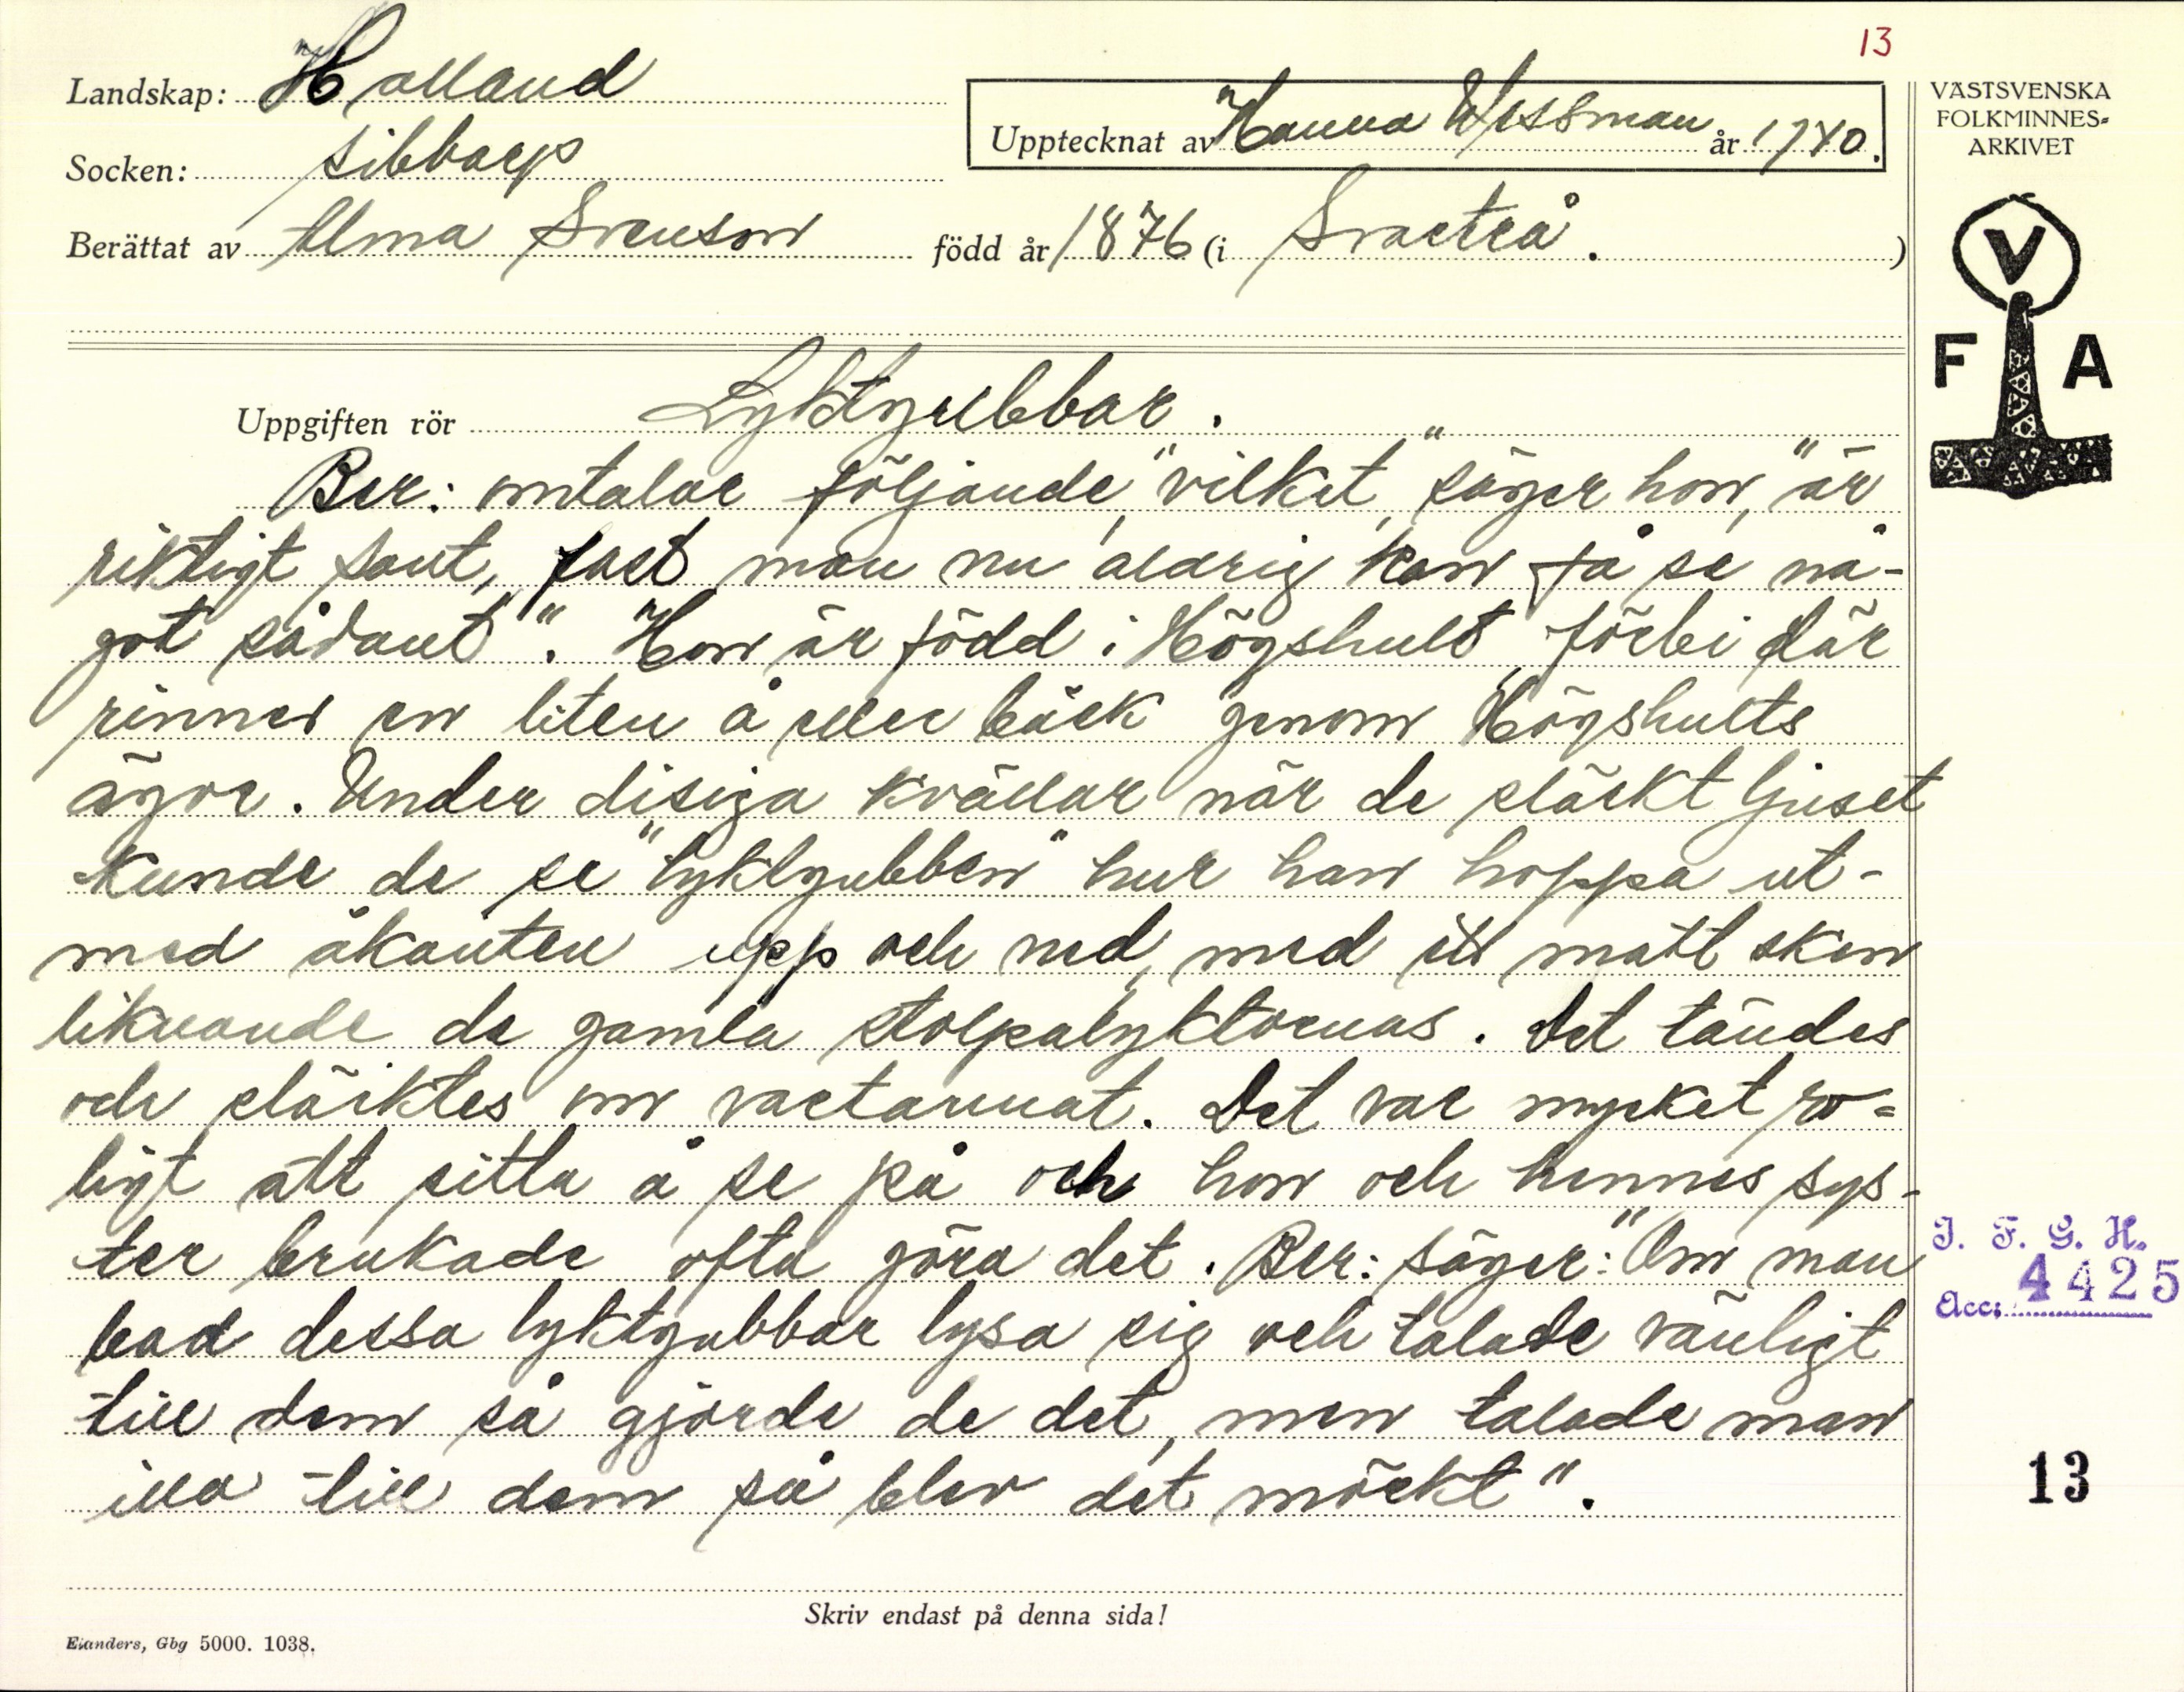 13
Landskap: Halland
Socken: Sibbarp
Berättat av Alma Svenson född år 1876 (i Svartrå. )
Upptecknat av Hanna Wessman år 1940.
VÄSTSVENSKA
FOLKMINNES-
ARKIVET
V
F A
Uppgiften rör Lyktgubbar.
Ber: omtalar följande, "vilket," säger hon, "är
riktigt sant, fast man nu aldrig kan få se nå-
got sådant". Hon är född i Högshult, förbi där
rinner en liten å eller bäck genom Högshults
ägor. Under disiga kvällar när de släckt ljuset
kunde de se "lyktgubben" hur han hoppa ut-
med åkanten upp och ned, med ett matt sken
liknande de gamla stolpalyktornas. Det tändes
och släcktes om vartannat. Det var mycket ro-
ligt att sitta å se på och hon och hennes sys-
ter brukade ofta göra det. Ber: säger: "Om man
bad dessa lyktgubbar lysa sig och talade vänligt
till dem så gjorde de det, men talade man
illa till dem så blev det mörkt".
I. F. G. H.
Acc: 4425
13
Skriv endast på denna sida!
Elanders, Gbg 5000. 1038.